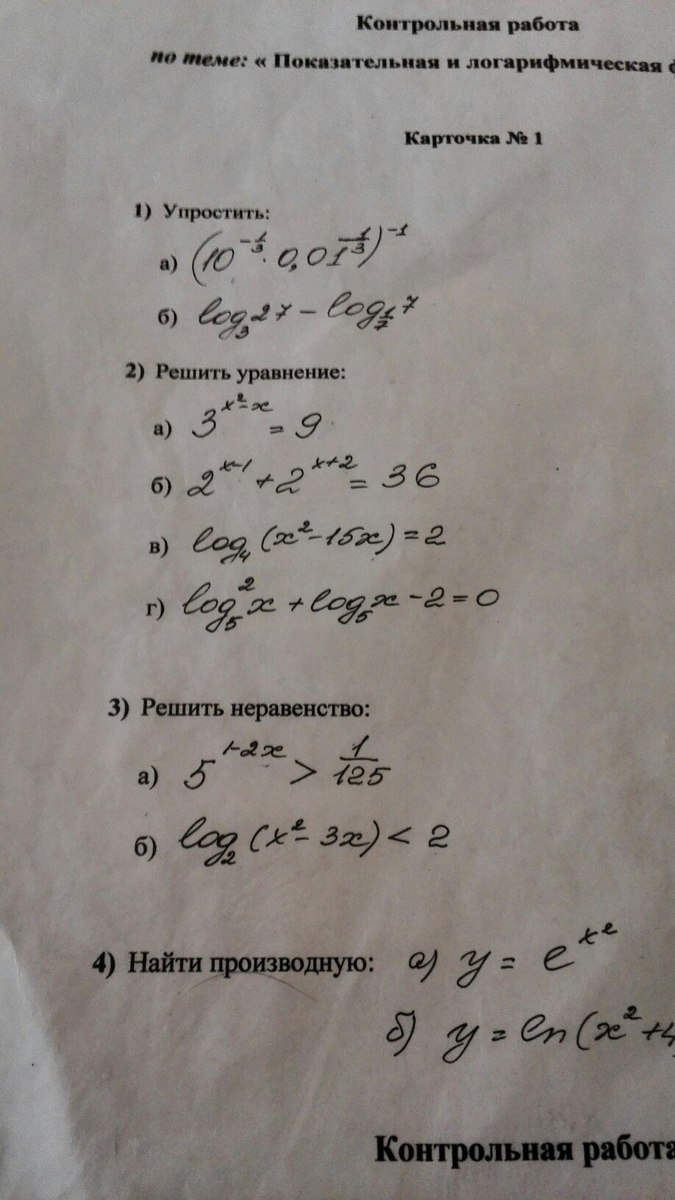 Контрольная работа
по теме: « Показательная и логарифмическая ф
Карточка № 1
1) Упростить:
а) (10^{-1/3} · 0,01^{-1/3})^{-1}
б) log₃27 − log_{1/7}7
2) Решить уравнение:
а) 3^{x²-x} = 9
б) 2^{x-1} + 2^{x+2} = 36
в) log₄(x²-15x) = 2
г) log₅²x + log₅x - 2 = 0
3) Решить неравенство:
а) 5^{1-2x} > 1/125
б) log₂(x² - 3x) < 2
4) Найти производную: а) y = e^{x²}
б) y = ln(x²+4
Контрольная работа